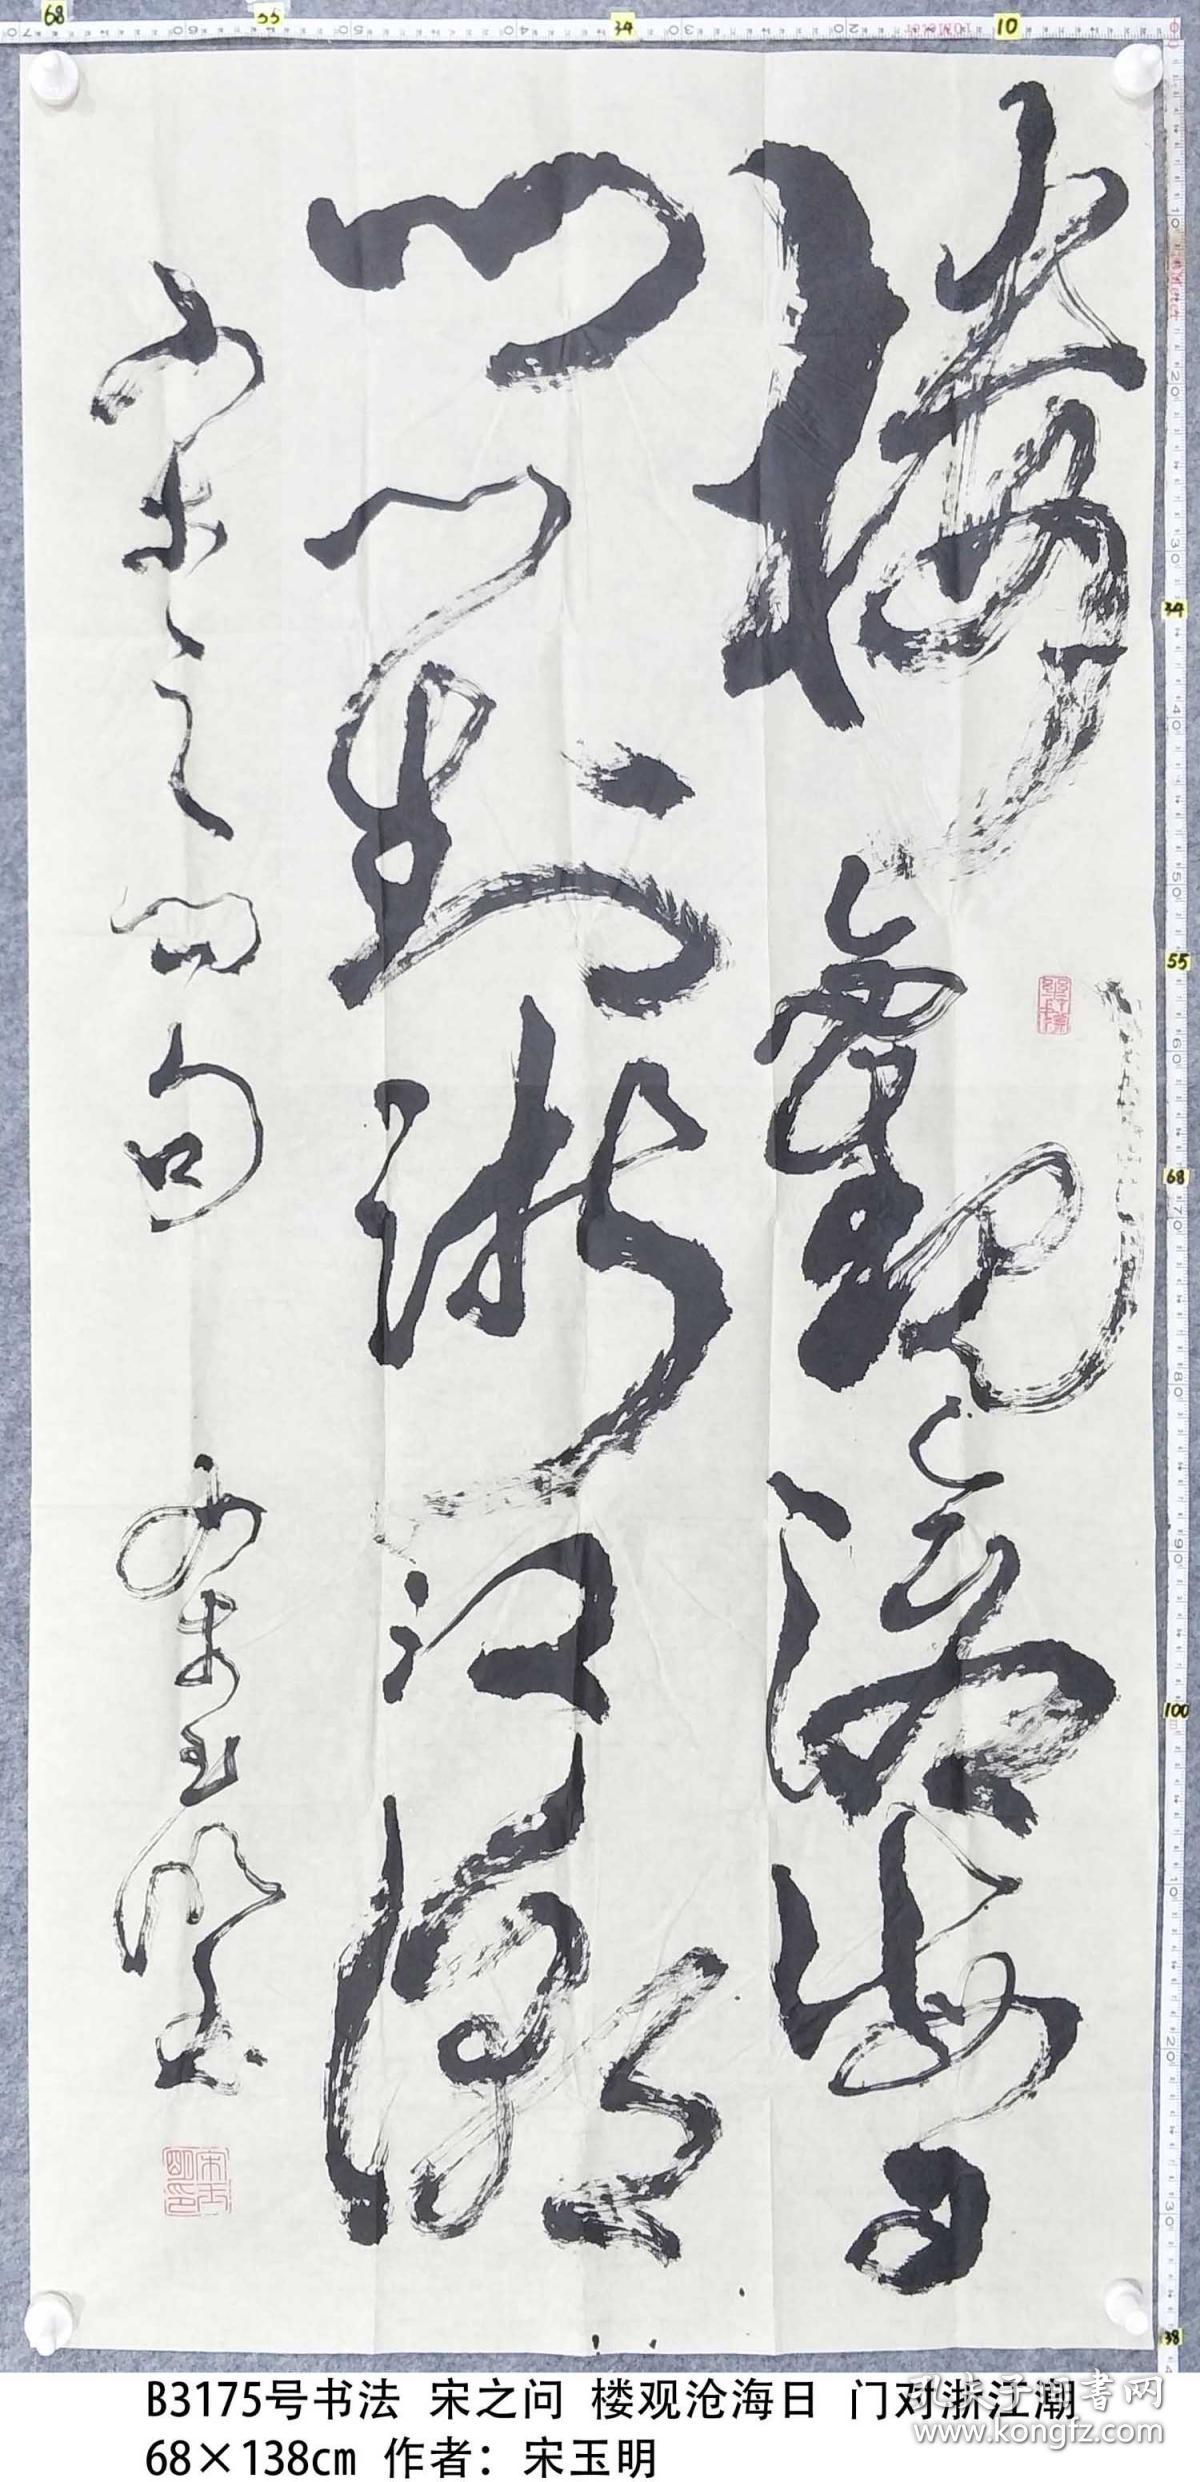 樓觀滄海日
門對浙江潮
宋之問句
宋玉明書
B3175号书法 宋之问 楼观沧海日 门对浙江潮
68×138cm 作者：宋玉明
孔夫子旧书网
www.kongfz.com